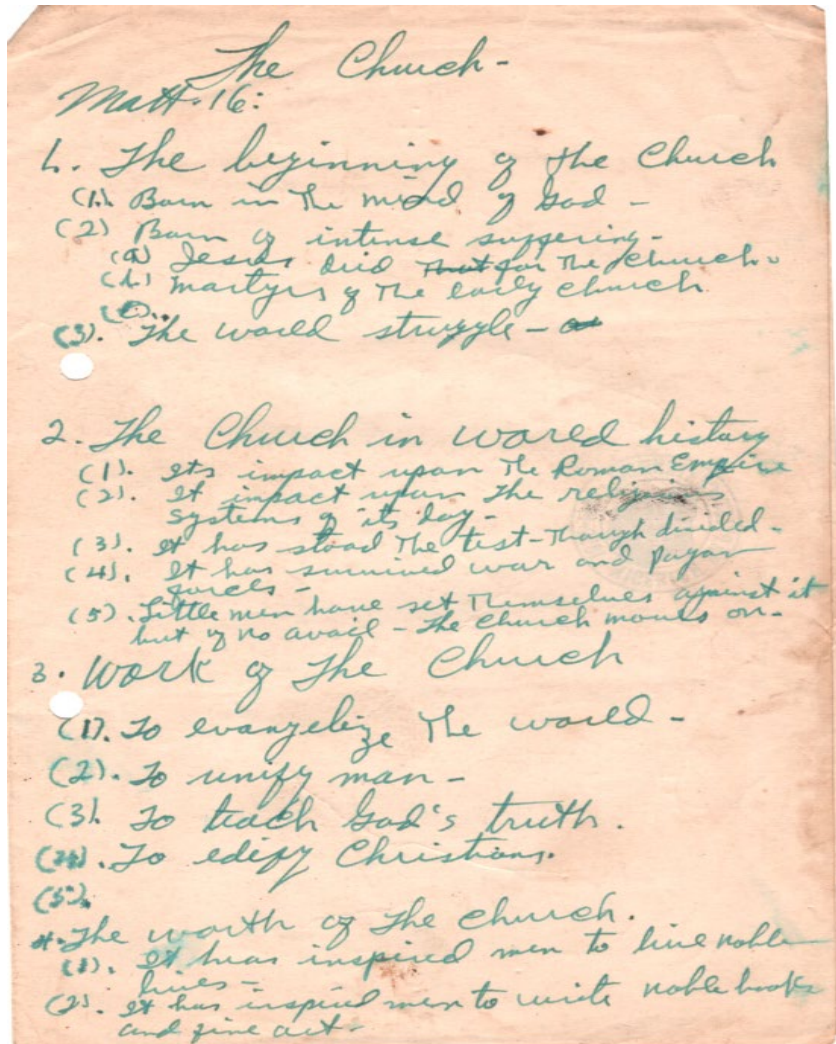 The Church-
Matt. 16:
1. The beginning of the Church
(1). Born in the mind of God -
(2) Born of intense suffering -
(a) Jesus died that for the church.
(b) martyrs of the early church
(c)..
(3). The world struggle -
2. The Church in world history
(1). Its impact upon the Roman Empire
(2). It impact upon the religious
systems of its day -
(3). It has stood the test - Though divided -
(4). It has survived war and pagan
forces -
(5). Little men have set themselves against it
but of no avail - The church moves on -
3. Work of the Church
(1). To evangelize the world -
(2). To unify man -
(3). To teach God's truth.
(4). To edify Christians.
(5).
4. The worth of the church.
(1). It has inspired men to live noble
lives -
(2). It has inspired men to write noble books
and fine art -